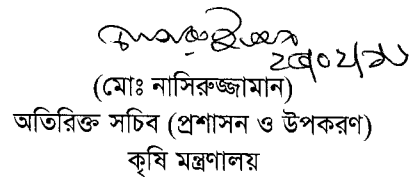 (মোঃ নাসিরুজ্জামান)
অতিরিক্ত সচিব (প্রশাসন ও উপকরণ)
কৃষি মন্ত্রণালয়